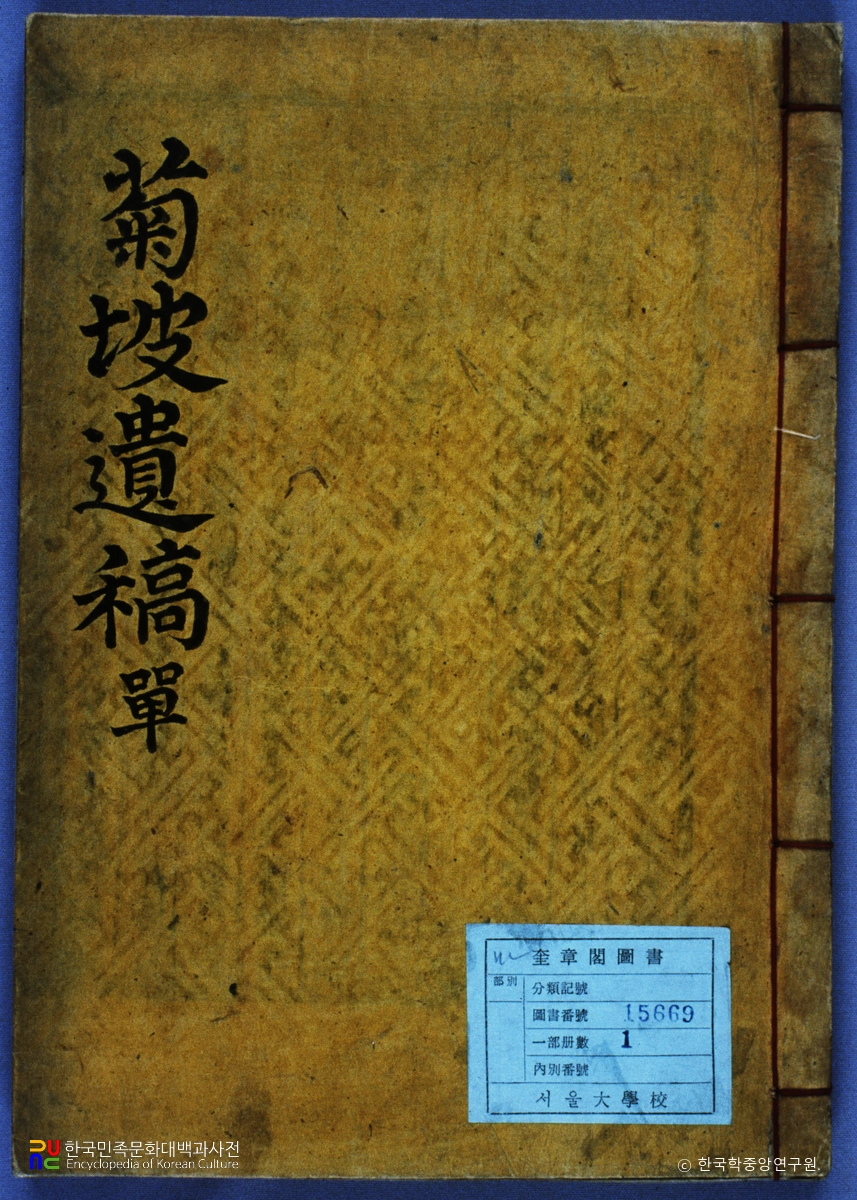 菊坡遺稿 單
奎章閣圖書
部別
分類記號
圖書番號 15669
一部册數 1
內別番號
서울大學校
한국민족문화대백과사전
Encyclopedia of Korean Culture
© 한국학중앙연구원